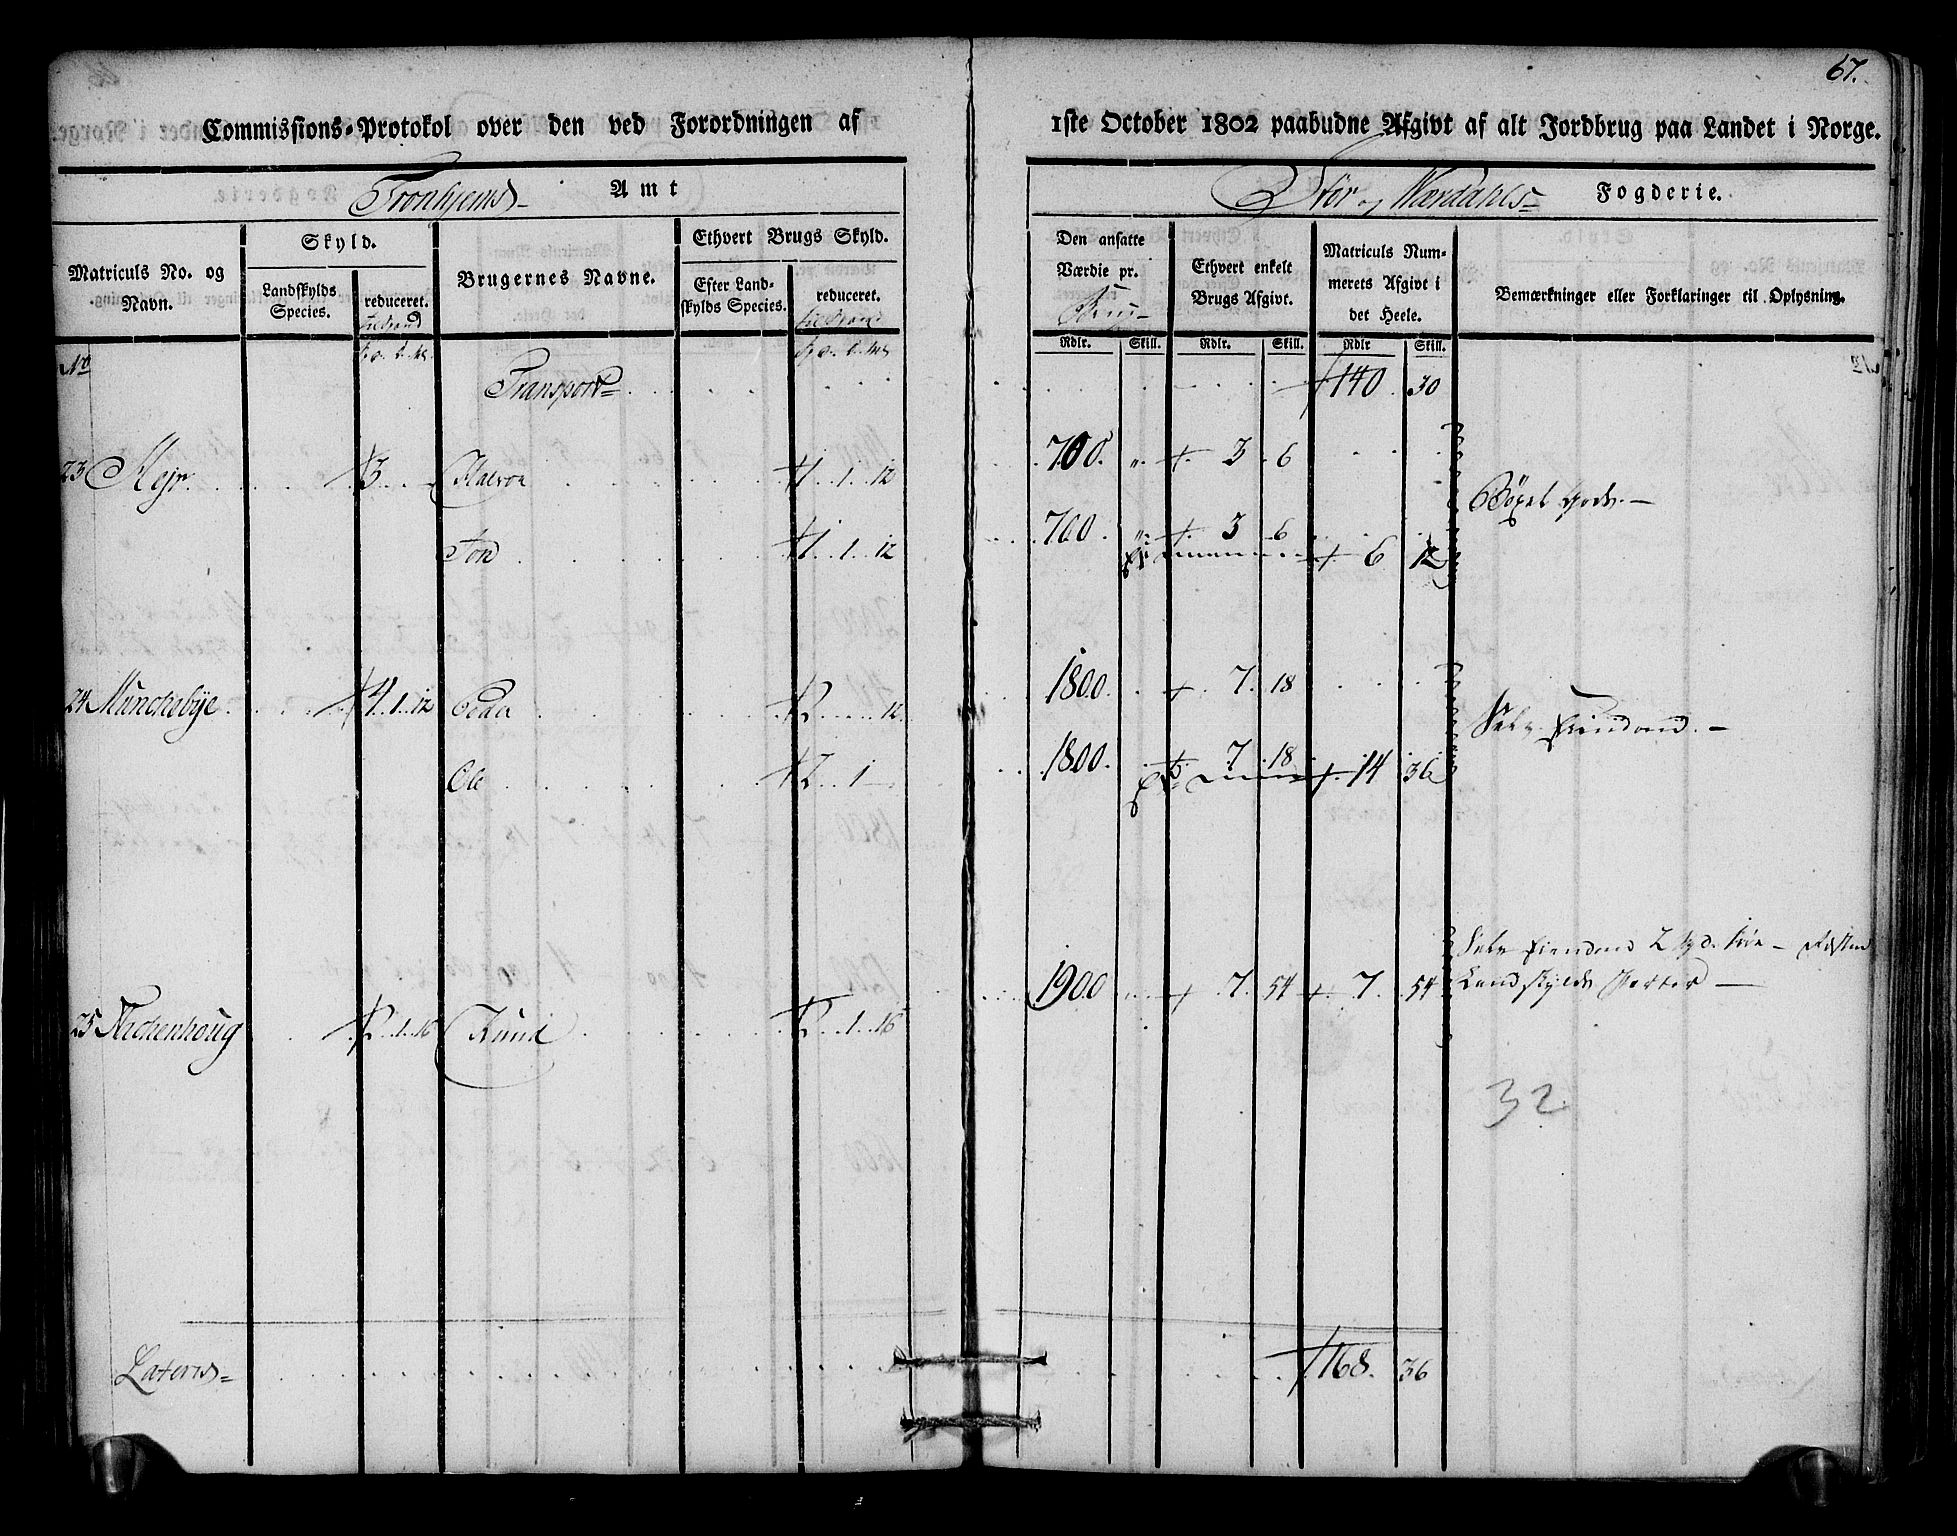 67.
Commissions-Protokol over den ved Forordningen af 1ste October 1802 paabudne Afgivt af alt Jordbrug paa Landet i Norge.
Tronhjems Amt
Stør og Wærdahls Fogderie.
Matriculs No. og Navn.
Skyld.
Landskylds Species.
reduceret.
Brugernes Navne.
Ethvert Brugs Skyld.
Efter Landskylds Species.
reduceret.
Den ansatte Værdie pr.
Ethvert enkelt Brugs Afgivt.
Matriculs Nummerets Afgivt i det Heele.
Bemærkninger eller Forklaringer til Oplysning.
Rdlr. Skill. Rdlr. Skill. Rdlr Skill.
No
Transport 140 30
23 3 Halvor 1 1 12 700 3 6
Jon 1 1 12 700 3 6
6 12
24 Munchebye 4 1 12 Peder 2 12 1800 7 18
Ole 2 1 1800 7 18
14 36
25 2 1 16 Knud 2 1 16 1900 7 54 7 54
32
Lateris 168 36